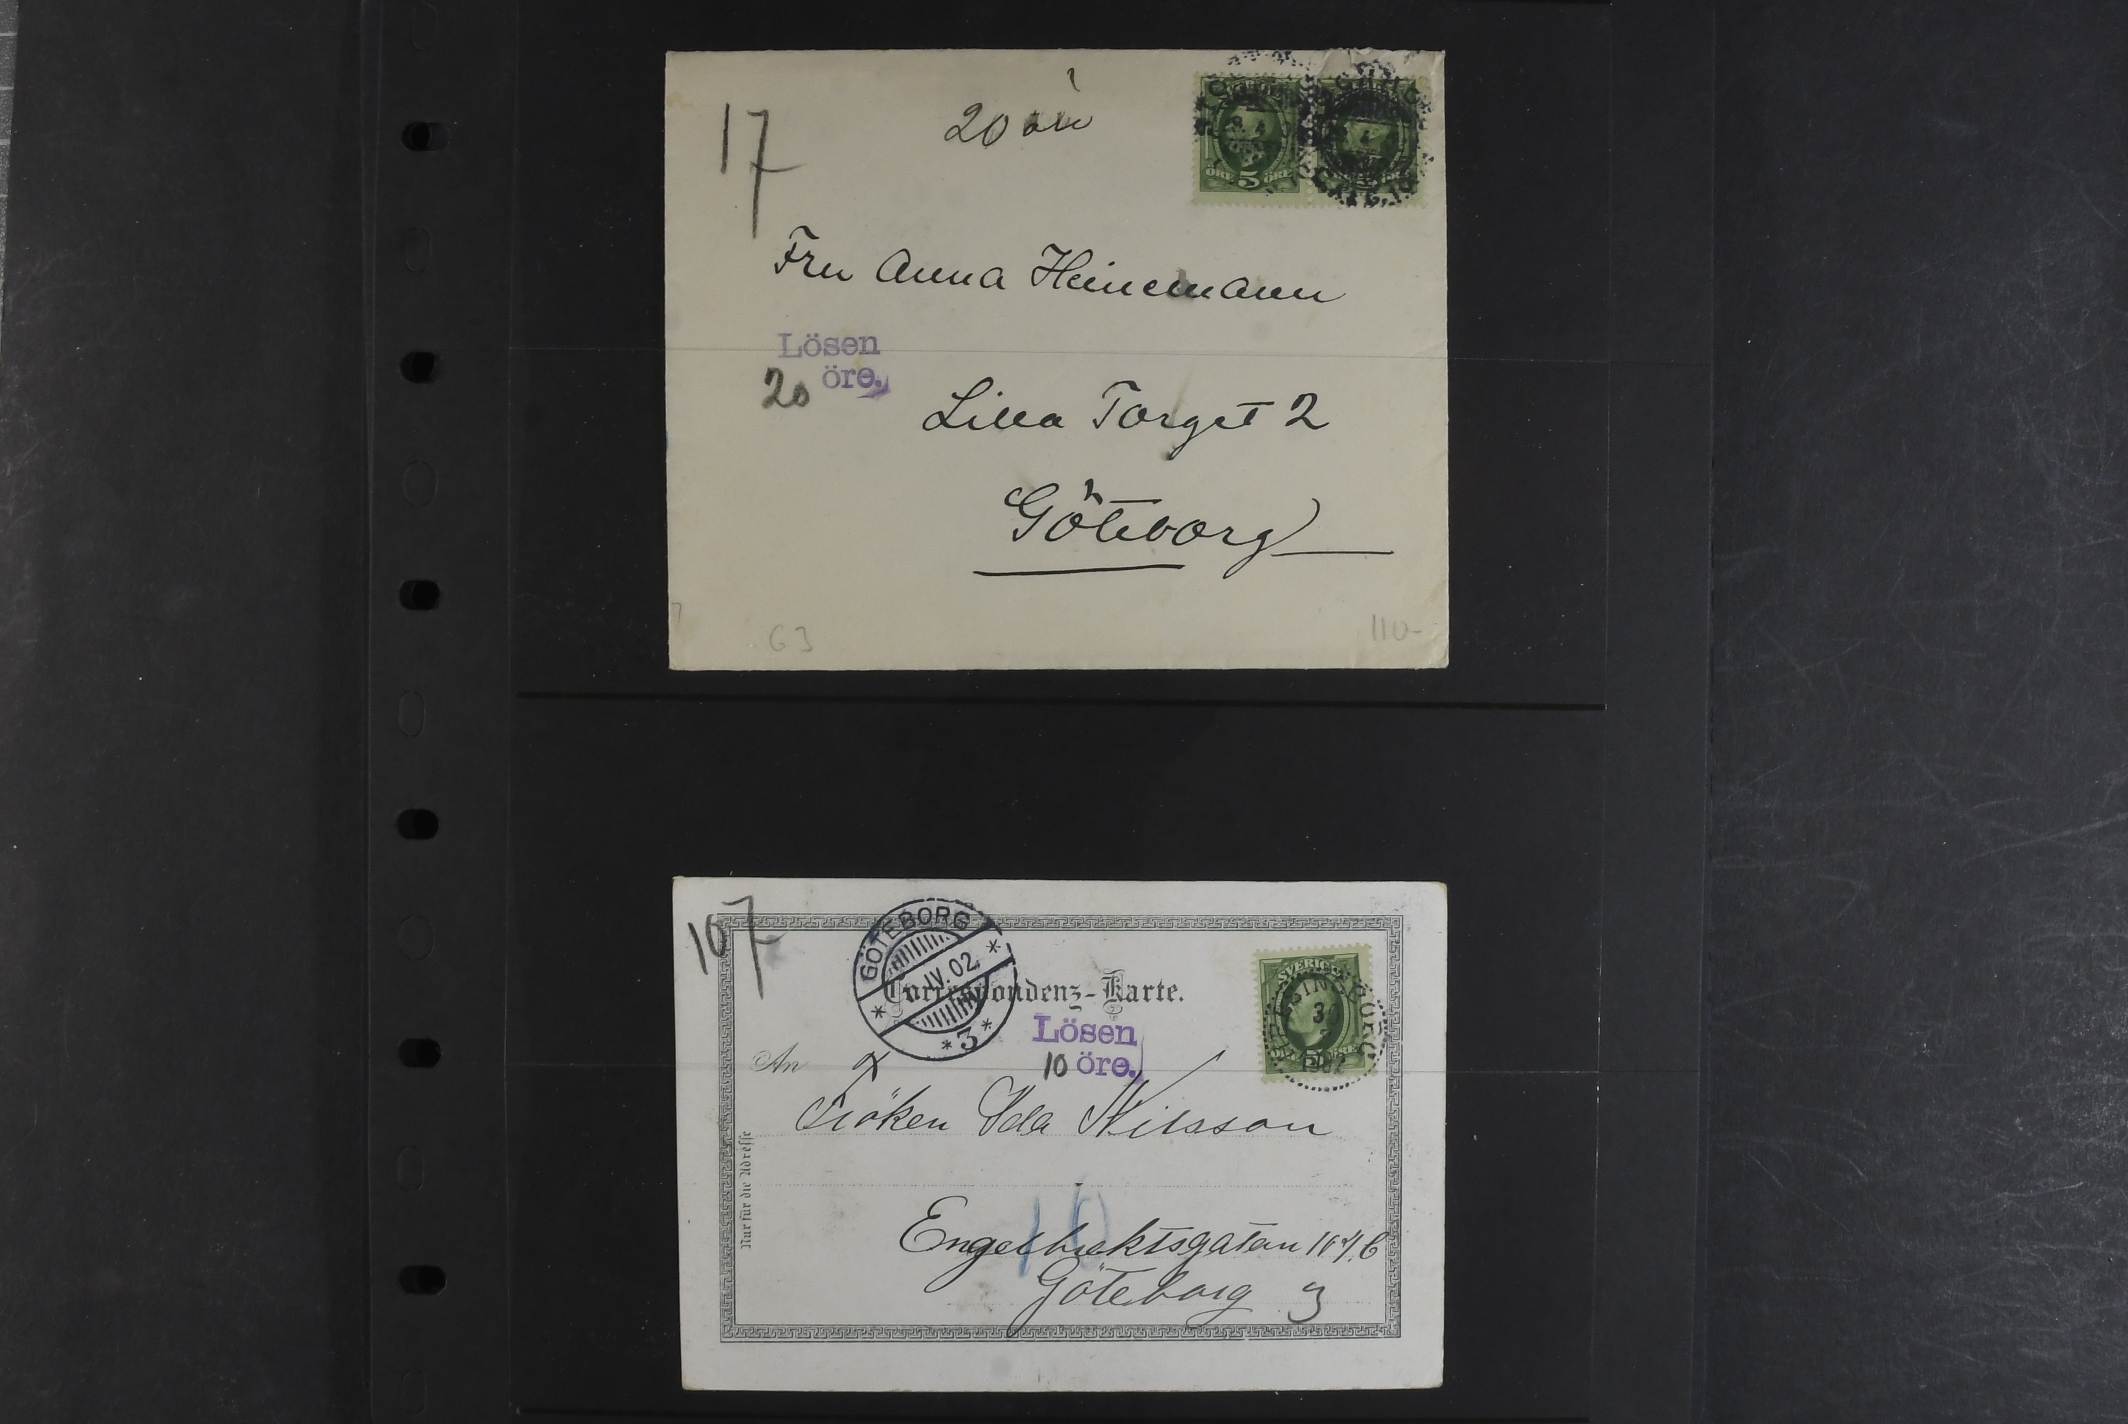 17
20 öre
5
ÖRE ÖRE
Fru Anna Heinemann
Lösen
20 öre.
Lilla Torget 2
Göteborg
G3
110-
107
GÖTEBORG
IV.02
*3*
Correspondenz-Karte.
SVERIGE
HELSINGBORG
30
1902
Lösen
10 öre.
An
Fröken Ida Nilsson
Nur für die Adresse
10
Engelbrektsgatan
Göteborg
3